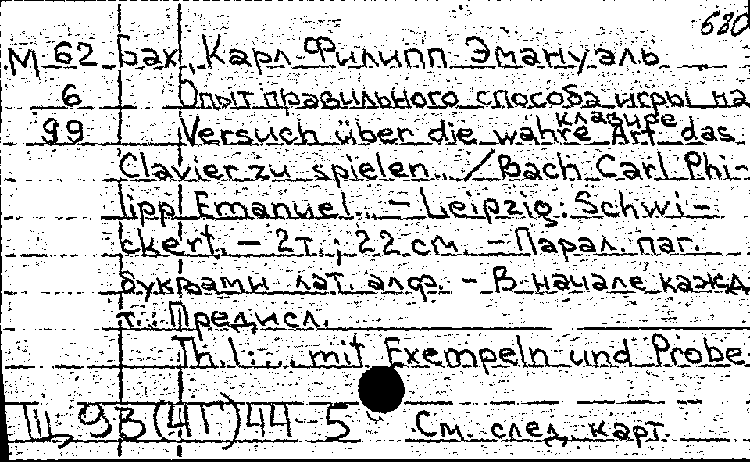 680
М 62 Бах, Карл Филипп Эмануэль
6 Опыт правильного способа игры на
клавире
99 Versuch über die wahre Art das
Clavier zu spielen... / Bach Carl Phi-
lipp Emanuel... – Leipzig: Schwi-
ckert. – 2т.; 22 см. – Парал. паг.
буквами лат. алф. – В начале кажд.
т.: Предисл.
Th. 1: ... mit Exempeln und Probe
Щ 93(4Г)44-5 См. след. карт.